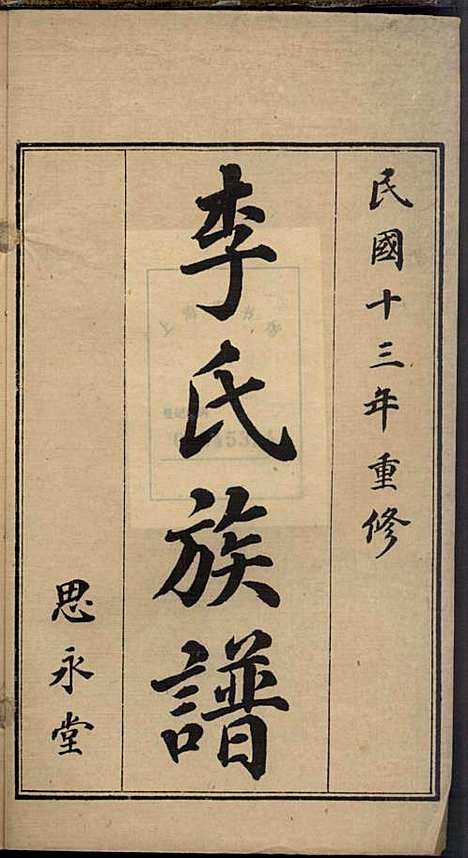 民國十三年重修
李氏族譜
思永堂